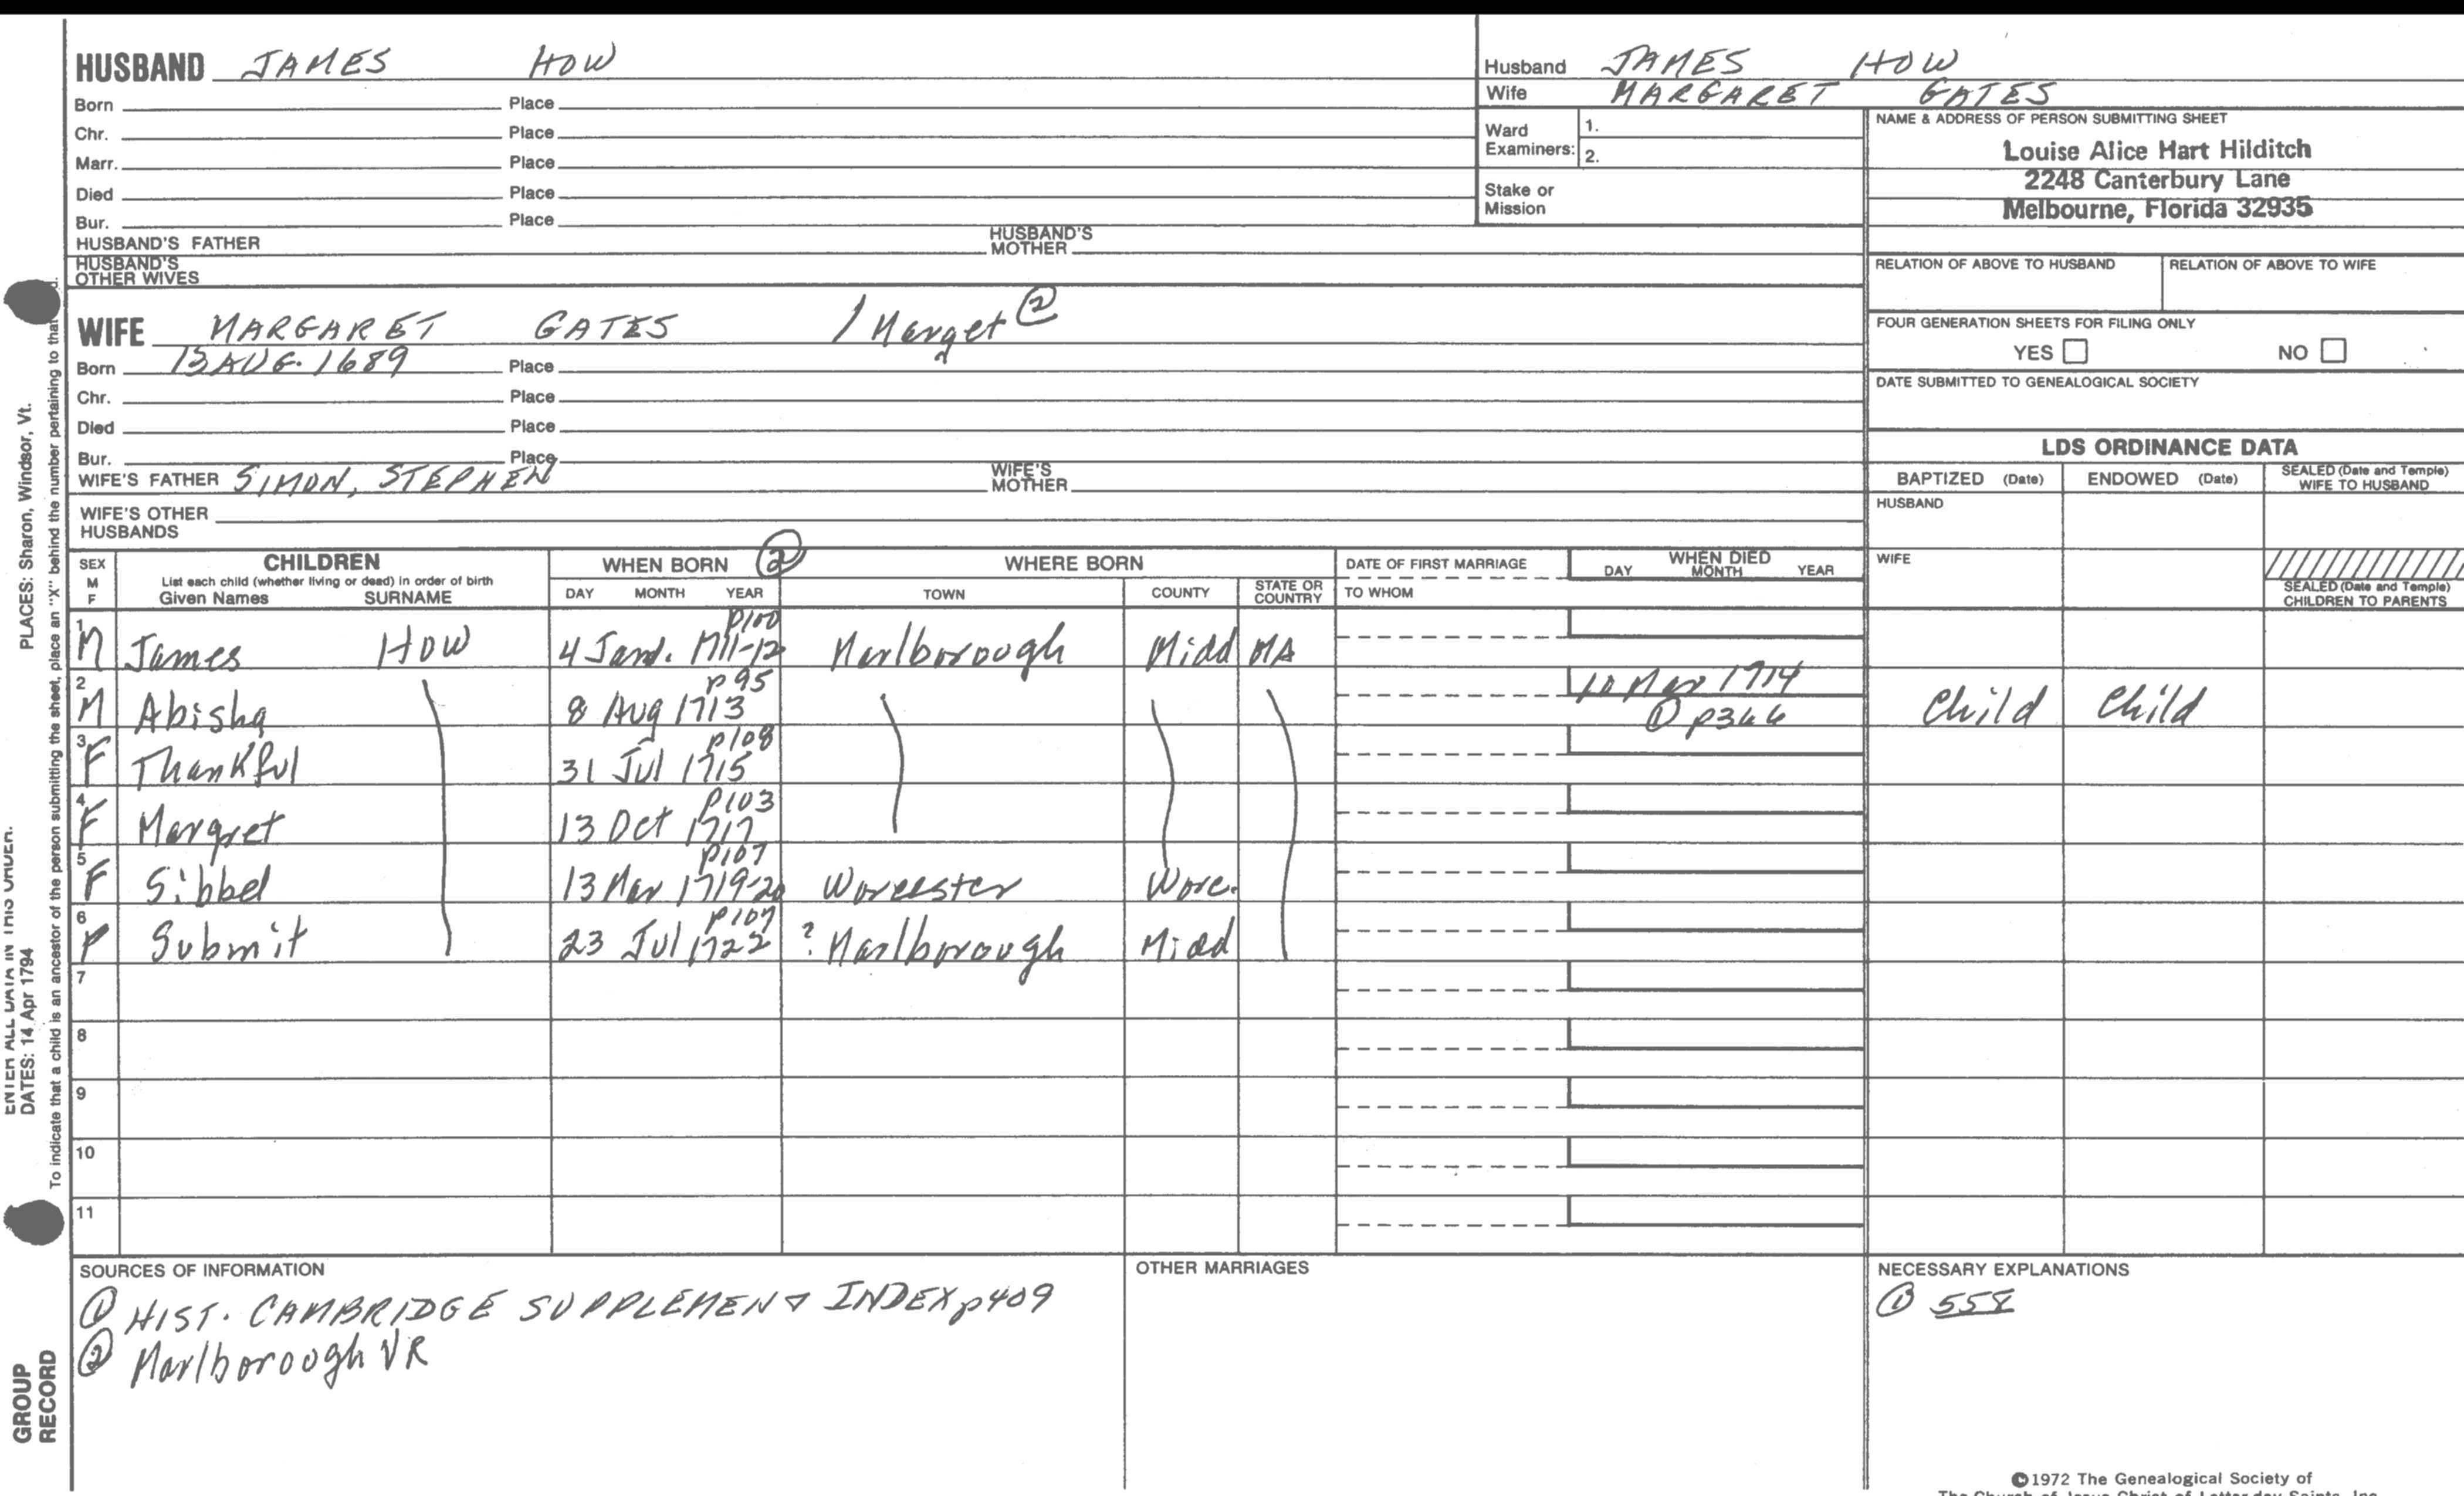 HUSBAND JAMES HOW
Born Place
Chr. Place
Marr. Place
Died Place
Bur. Place
HUSBAND'S FATHER HUSBAND'S MOTHER
HUSBAND'S OTHER WIVES
WIFE MARGARET GATES / Marget ②
Born 13 AUG. 1689 Place
Chr. Place
Died Place
Bur. Place
WIFE'S FATHER SIMON, STEPHEN WIFE'S MOTHER
WIFE'S OTHER HUSBANDS
Husband JAMES HOW
Wife MARGARET GATES
Ward Examiners: 1.
2.
Stake or Mission
NAME & ADDRESS OF PERSON SUBMITTING SHEET
Louise Alice Hart Hilditch
2248 Canterbury Lane
Melbourne, Florida 32935
RELATION OF ABOVE TO HUSBAND RELATION OF ABOVE TO WIFE
FOUR GENERATION SHEETS FOR FILING ONLY
YES NO
DATE SUBMITTED TO GENEALOGICAL SOCIETY
LDS ORDINANCE DATA
BAPTIZED (Date) ENDOWED (Date) SEALED (Date and Temple) WIFE TO HUSBAND
HUSBAND
WIFE
SEALED (Date and Temple) CHILDREN TO PARENTS
SEX M F
CHILDREN
List each child (whether living or dead) in order of birth
Given Names SURNAME
WHEN BORN ②
DAY MONTH YEAR
WHERE BORN
TOWN COUNTY STATE OR COUNTRY
DATE OF FIRST MARRIAGE
TO WHOM
WHEN DIED
DAY MONTH YEAR
p100
1 M James How 4 Jan. 1711-12 Marlborough Midd MA
p95 10 Mar 1714
2 M Abisha 8 Aug 1713 ① p366 Child Child
p108
3 F Thankful 31 Jul 1715
p103
4 F Margret 13 Oct 1717
p107
5 F Sibbel 13 Mar 1719-20 Worcester Worc.
p107
6 F Submit 23 Jul 1722 ? Marlborough Midd
7
8
9
10
11
SOURCES OF INFORMATION
① HIST. CAMBRIDGE SUPPLEMENT INDEX p409
② Marlborough VR
OTHER MARRIAGES
NECESSARY EXPLANATIONS
① 558
©1972 The Genealogical Society of
The Church of Jesus Christ of Latter-day Saints, Inc.
PLACES: Sharon, Windsor, Vt.
ENTER ALL DATA IN THIS ORDER.
DATES: 14 Apr 1794
To indicate that a child is an ancestor of the person submitting the sheet, place an "X" behind the number pertaining to that
GROUP RECORD